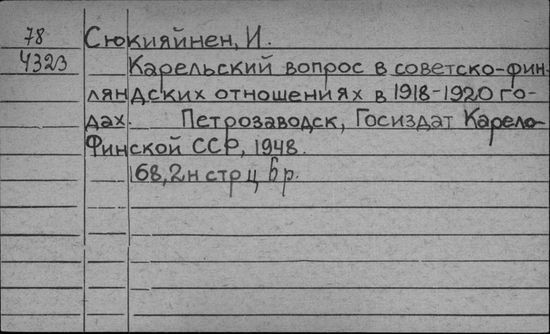 78 Сюкияйнен, И.
4323 Карельский вопрос в советско-фин-
ляндских отношениях в 1918-1920 го-
дах. Петрозаводск, Госиздат Карело-
Финской ССР, 1948.
68, 2н стрц бр.